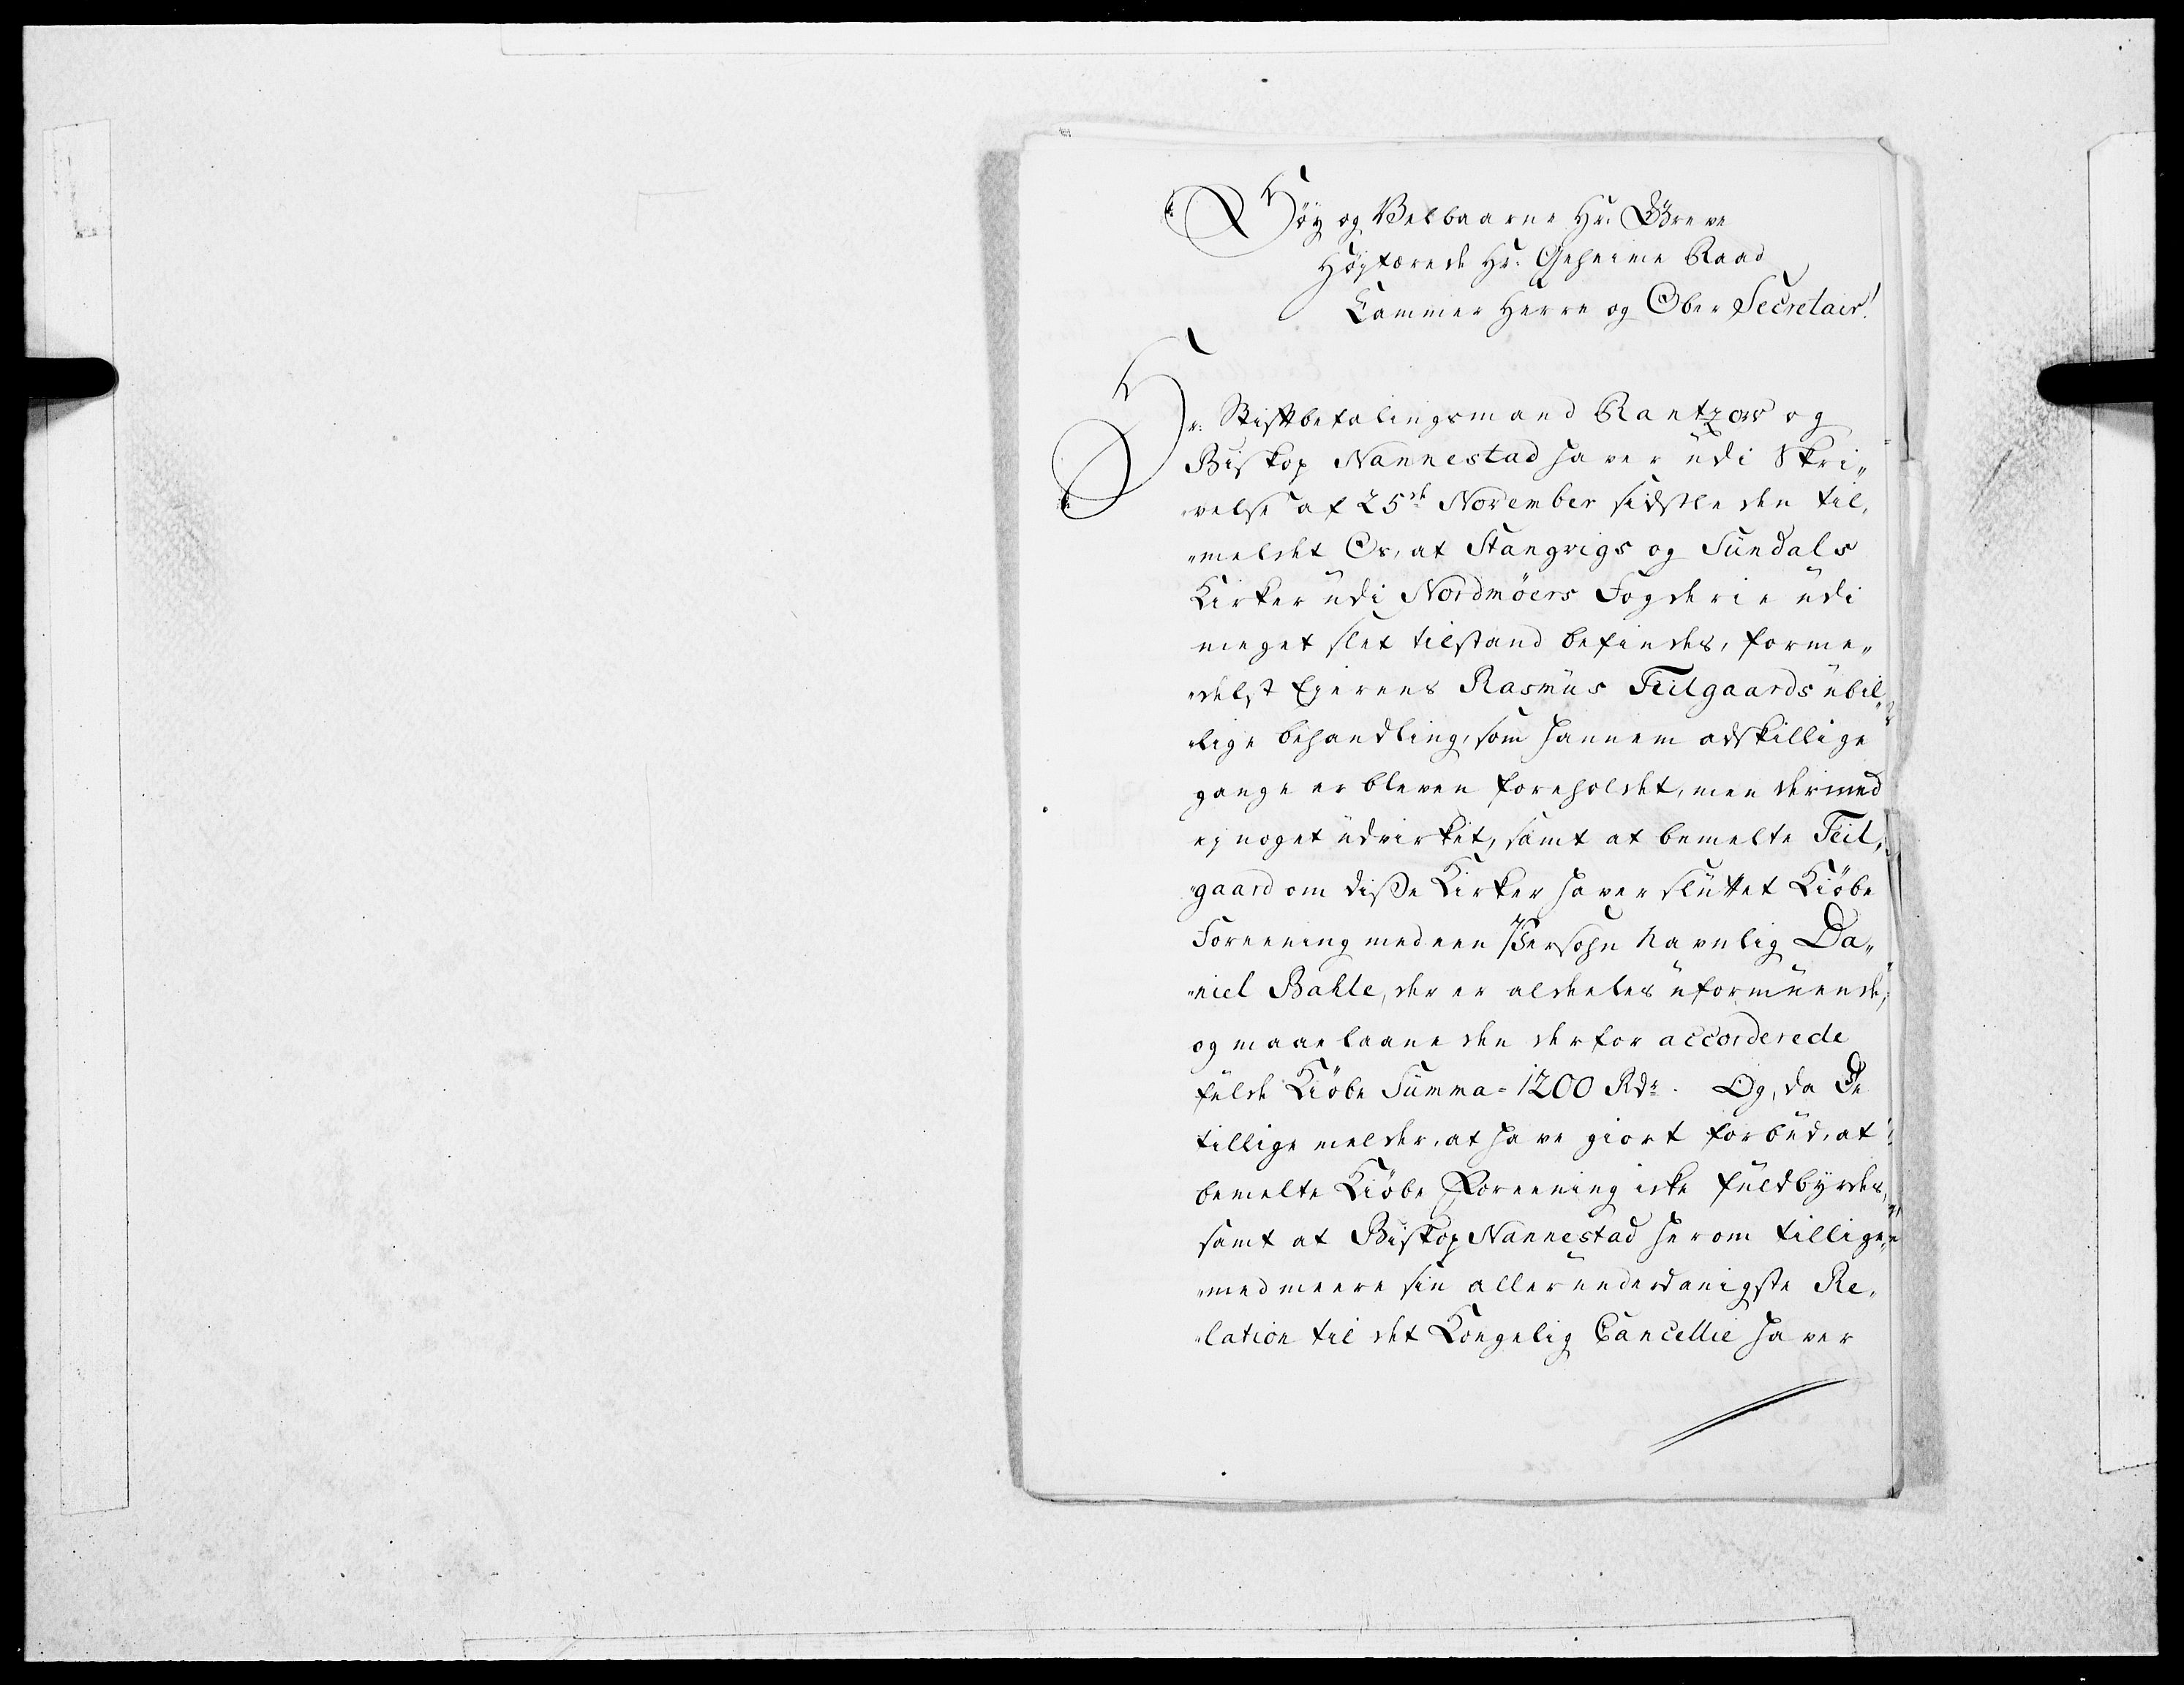 Høy og Velbaarne Hr: Greve
Høystærede Hr: Geheime Raad
Kammer Herre og Ober Secretair!
Hr: Stiftbefalingsmand Rantzow og
Biskop Nannestad haver udi Skri„
„velse af 25de November sidstleden til„
„meldet Os, at Stangvigs og Sundals
Kirker udi Nordmöers Fogderie udi
meget slet tilstand befindes, forme„
„delst Ejerens Rasmus Teilgaards ubil„
„lige behandling, som hannem adskillige
gange er bleven foreholdet, men dermed
ej noget udvirket, samt at bemelte Teil„
„gaard om disse Kirker haver sluttet Kiøbe
Foreening med een Persohn Navnlig Da„
„niel Bahle, der er aldeeles uformuende,
og maae laane den derfor accorderede
fulde Kiøbe Summa = 1200 Rdr. Og, da De
tillige melder, at have giort forbud, at
bemelte Kiøbe Foreening icke fuldbyrdes,
samt at Biskop Nannestad herom tillige„
„med meere sin allerunderdanigste Re„
„lation til det Kongelig Cancellie haver